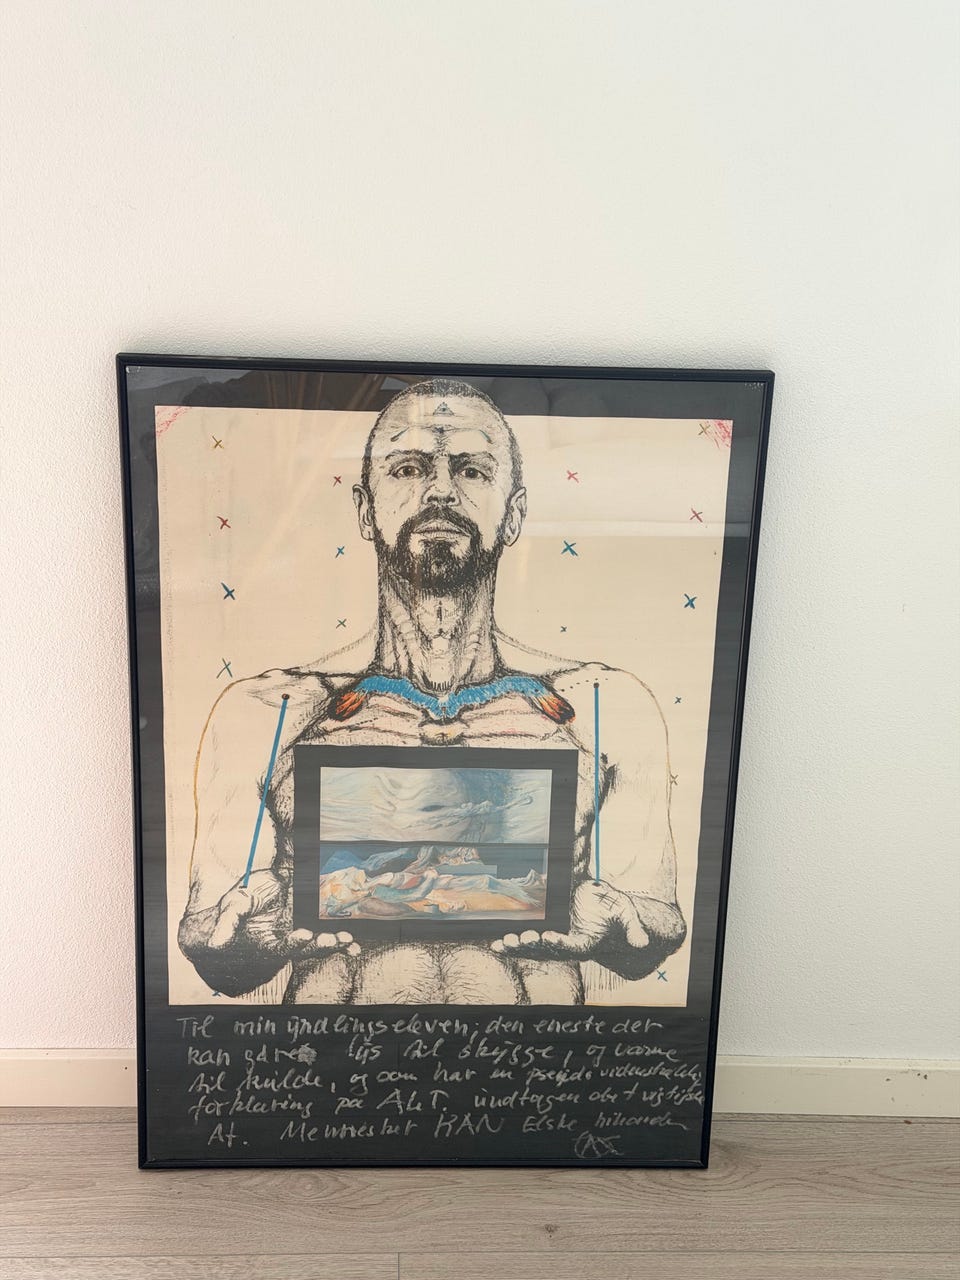 Til min yndlingseleven; den eneste der
kan gøre lys til skygge, og varme
til kulde, og som har en pseudovidenskabelig
forklaring på ALT. undtagen det vigtigste
At. Mennesker KAN Elske hinanden